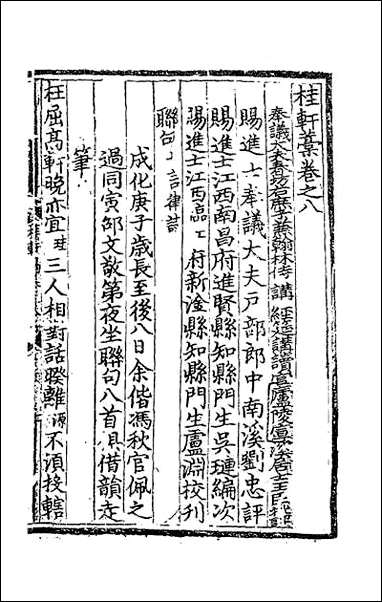 桂軒藁卷之八
奉議大夫春坊右庶子兼翰林侍講 經筵講讀官廬陵
賜進士奉議大夫戶部郎中南溪劉忠評
賜進士江西南昌府進賢縣知縣門生吳璉編次
賜進士江西臨江府新淦縣知縣門生盧淵校刊
聯句 言律詩
成化庚子歲長至後八日余偕馮秋官佩之
過同寅邵文敬第夜坐聯句八首俱借韻走
筆
枉屈高軒晚亦宜 三人相對話暌離 不須投轄